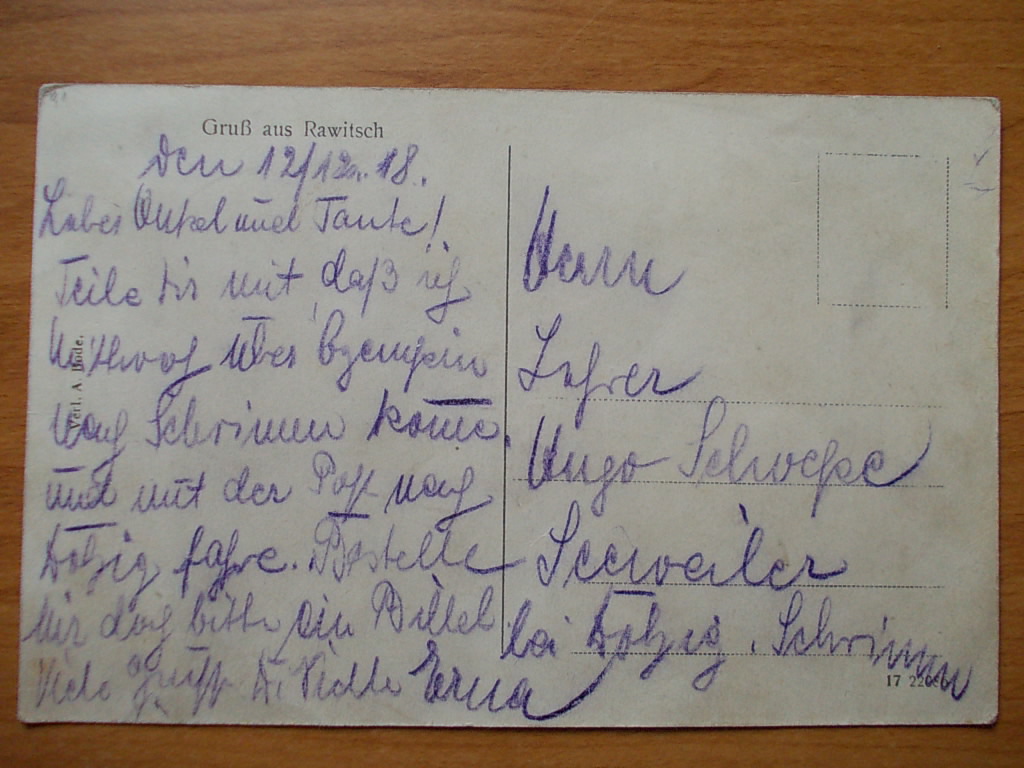 Gruß aus Rawitsch
Den 12/12. 18.
Lieber Onkel und Tante!
Teile Dir mit, daß ich
Mittwoch über
nach Schrimm kome
und mit der Post nach
Dolzig fahre. Bestelle
Mir doch bitte ein Billet
Viele Grüße D. Erna
Verl. A. Bode.
Herrn
Lehrer
Hugo Schwepe
Seeweiler
bei Dolzig, Schrimm
17